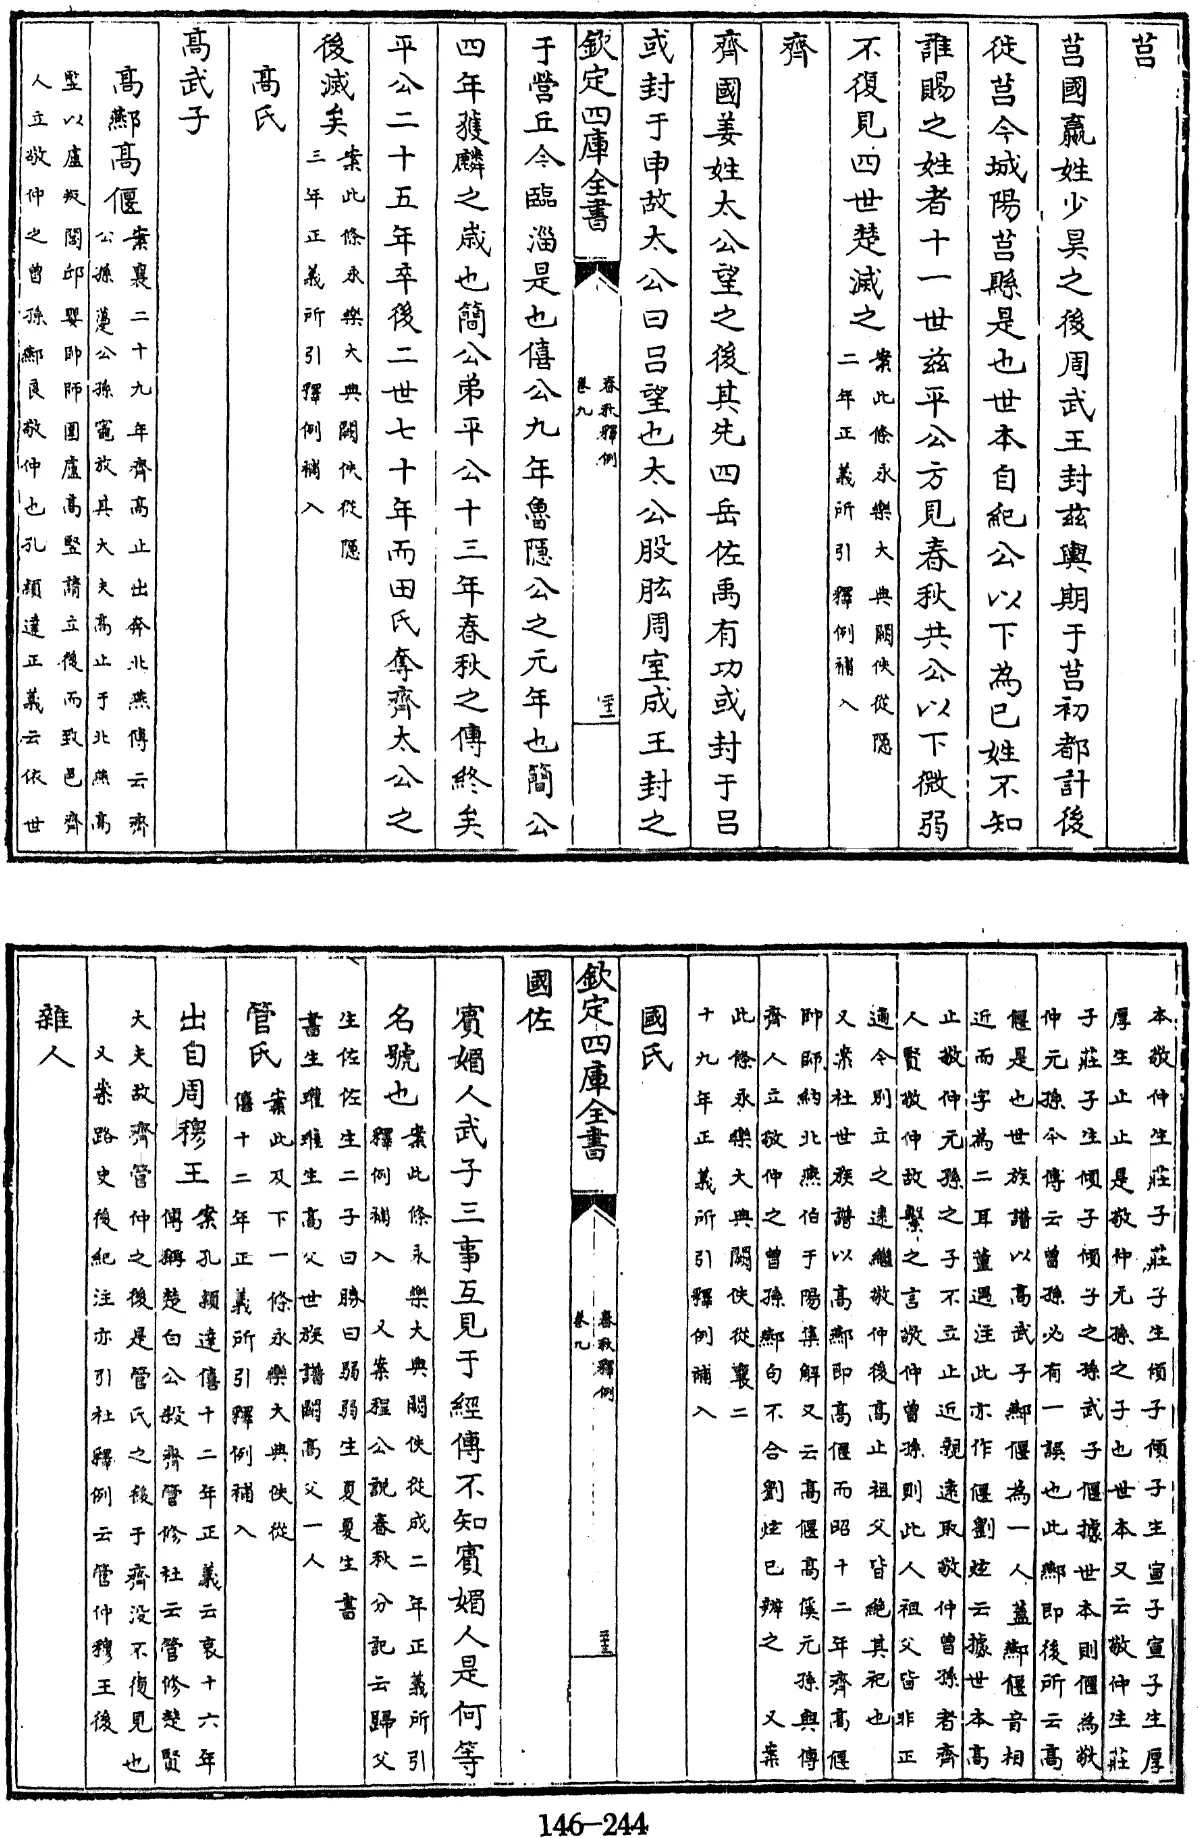 莒
莒國嬴姓少昊之後周武王封兹輿期于莒初都計後
徙莒今城陽莒縣是也世本自紀公以下為已姓不知
誰賜之姓者十一世兹平公方見春秋共公以下微弱
不復見四世楚滅之案此條永樂大典闕佚從隱
二年正義所引釋例補入
齊
齊國姜姓太公望之後其先四岳佐禹有功或封于呂
或封于申故太公曰呂望也太公股肱周室成王封之
欽定四庫全書
春秋釋例
卷九
于營丘今臨淄是也僖公九年魯隱公之元年也簡公
四年獲麟之歲也簡公弟平公十三年春秋之傳終矣
平公二十五年卒後二世七十年而田氏奪齊太公之
後滅矣案此條永樂大典闕佚從隱
三年正義所引釋例補入
高氏
高武子
高酀高偃案襄二十九年齊高止出奔北燕傳云齊
公孫蠆公孫竈放其大夫高止于北燕高
豎以盧叛閭邱嬰帥師圍盧高豎請立後而致邑齊
人立敬仲之曾孫酀良敬仲也孔穎達正義云依世
本敬仲生莊子莊子生傾子傾子生宣子宣子生厚
厚生止止是敬仲元孫之子也世本又云敬仲生莊
子莊子生傾子傾子之孫武子偃據世本則偃為敬
仲元孫今傳云曾孫必有一誤也此酀即後所云高
偃是也世族譜以高武子酀偃為一人蓋酀偃音相
近而字為二耳董遇注此亦作偃劉炫云據世本高
止敬仲元孫之子不立止近親遠取敬仲曾孫者齊
人賢敬仲故繫之言敬仲曾孫則此人祖父皆非正
適今別立之遠繼敬仲後高止祖父皆絶其祀也
又案杜世族譜以高酀即高偃而昭十二年齊高偃
帥師納北燕伯于陽集解又云高偃高傒元孫與傳
齊人立敬仲之曾孫酀句不合劉炫已辨之 又案
此條永樂大典闕佚從襄二
十九年正義所引釋例補入
國氏
欽定四庫全書
春秋釋例
卷九
國佐
賓媚人武子三事互見于經傳不知賓媚人是何等
名號也案此條永樂大典闕佚從成二年正義所引
釋例補入 又案程公說春秋分記云歸父
生佐佐生二子曰勝曰弱弱生夏夏生書
書生瓘瓘生高父世族譜闕高父一人
管氏案此及下一條永樂大典佚從
僖十二年正義所引釋例補入
出自周穆王案孔穎達僖十二年正義云哀十六年
傳稱楚白公殺齊管修杜云管修楚賢
大夫故齊管仲之後是管氏之後于齊沒不復見也
又案路史後紀注亦引杜釋例云管仲穆王後
雜人
146-244